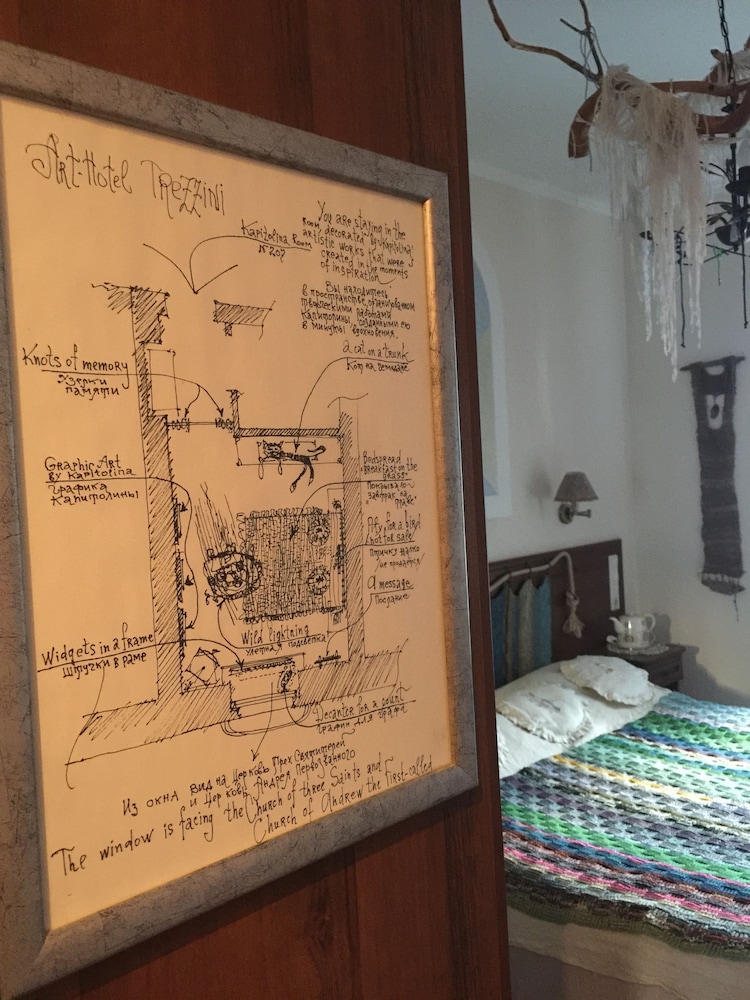 Art-Hotel TREZZINI
Kapitolina Room
№ 207
You are staying in the
room decorated by Kapitolina's
artistic works that were
created in the moments
of inspiration
Вы находитесь
в пространстве, организованном
творческими работами
Капитолины, созданными ею
в минуты вдохновения.
Knots of memory
Узелки
памяти
a cat on a trunk
Кот на
Graphic Art
by Kapitolina
Графика
Капитолины
Bedspread
"Breakfast on the
grass"
Покрывало
"завтрак на
траве"
Pity for a bird
not for sale
Птичку жалко
не продаётся
a message
Послание
Wild lightning
подсветка
Widgets in a frame
Штучки в раме
Decanter for a count
Графин для графа
Из окна вид на Церковь Трех Святителей
и Церковь Андрея Первозванного
The window is facing the Church of three Saints and
Church of Andrew the First-called